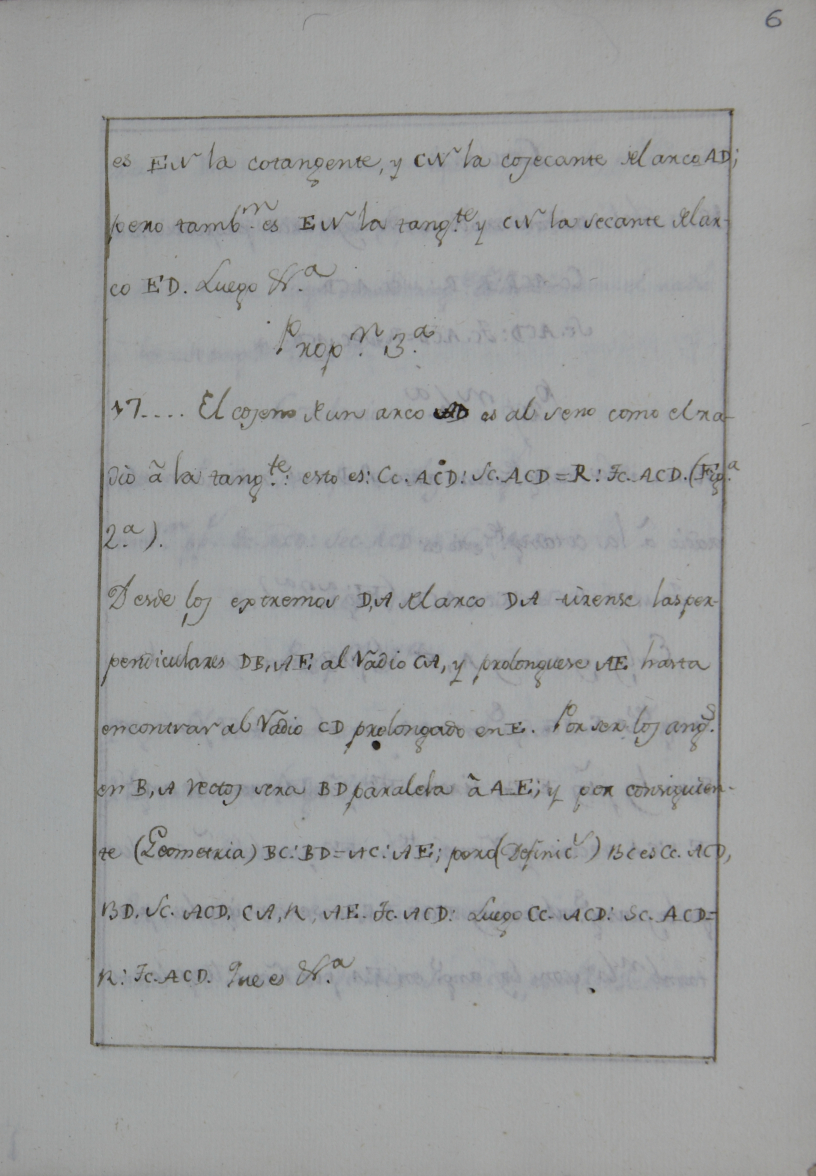 6
es EN la cotangente, y CN la cosecante del arco AD;
pero tamb.n es EN la tang.te y CN la secante del ar-
co ED. Luego &.a
Prop.n 3.a
17.... El coseno de un arco es al seno como el ra-
dio à la tang.te: esto es: Cc. ACD: Sc. ACD = R: Tc. ACD. (Fig.a
2.a).
Desde los extremos D,A del arco DA tirense las per-
pendiculares DB, AE al Radio CA, y prolonguese AE hasta
encontrar al Radio CD prolongado en E. Por ser los ang.s
en B, A rectos sera BD paralela à AE; y por consiguien-
te (Geometria) BC: BD = AC: AE; pero (Definic.) BC es Cc. ACD,
BD. Sc. ACD, CA, R, AE. Tc. ACD: Luego Cc. ACD: Sc. ACD =
R: Tc. ACD. Que es &.a